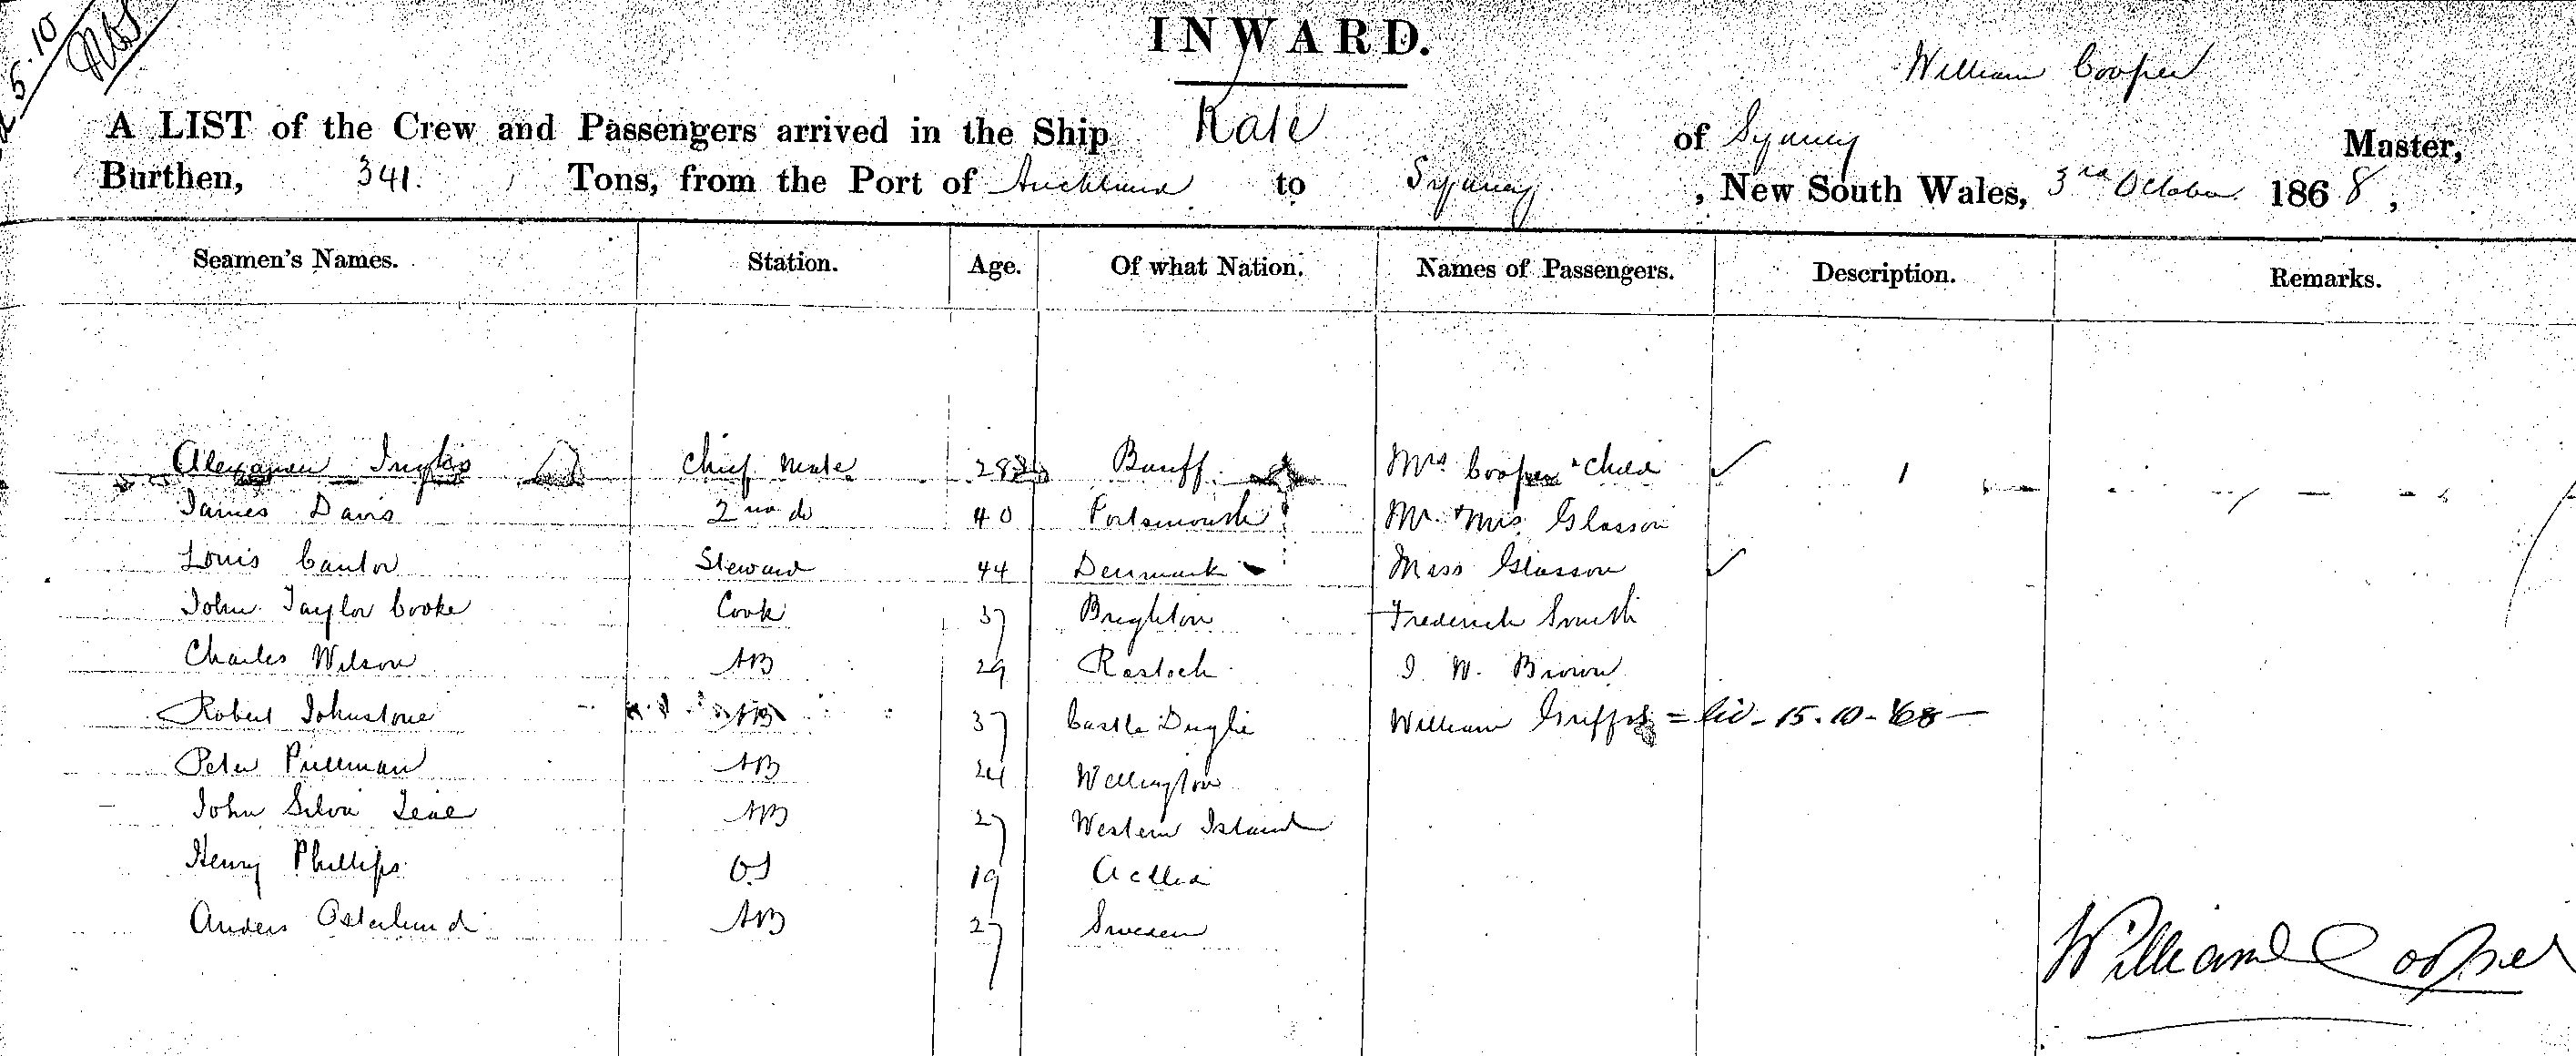 5.10
INWARD.
William Cooper
A LIST of the Crew and Passengers arrived in the Ship Kate of Sydney Master,
Burthen, 341. Tons, from the Port of Auckland to Sydney, New South Wales, 3rd October 1868,
Seamen's Names. Station. Age. Of what Nation. Names of Passengers. Description. Remarks.
Alexander Inglis Chief Mate 28 Banff Mrs Cooper & Child
James Davis 2nd do 40 Portsmouth Mr & Mrs Glasson
Louis Cantor Steward 44 Denmark Miss Glasson
John Taylor Cooke Cook 37 Brighton Frederick Smith
Charles Wilson AB 29 Rostock J. W. Brown
Robert Johnstone AB 37 Castle William 15.10-68
Peter Pullman AB 24 Wellington
John Silva AB 27 Western Island
Henry Phillips OS 19
Anders Osterlund AB 27 Sweden
William Cooper